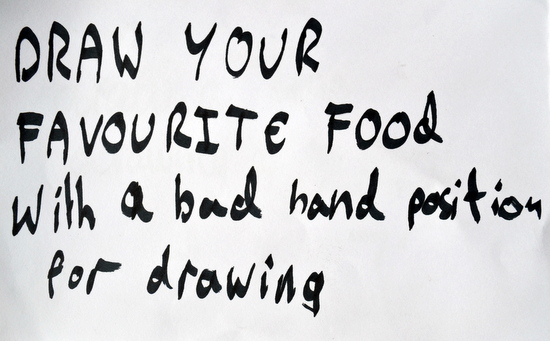 DRAW YOUR
FAVOURITE FOOD
With a bad hand position
for drawing